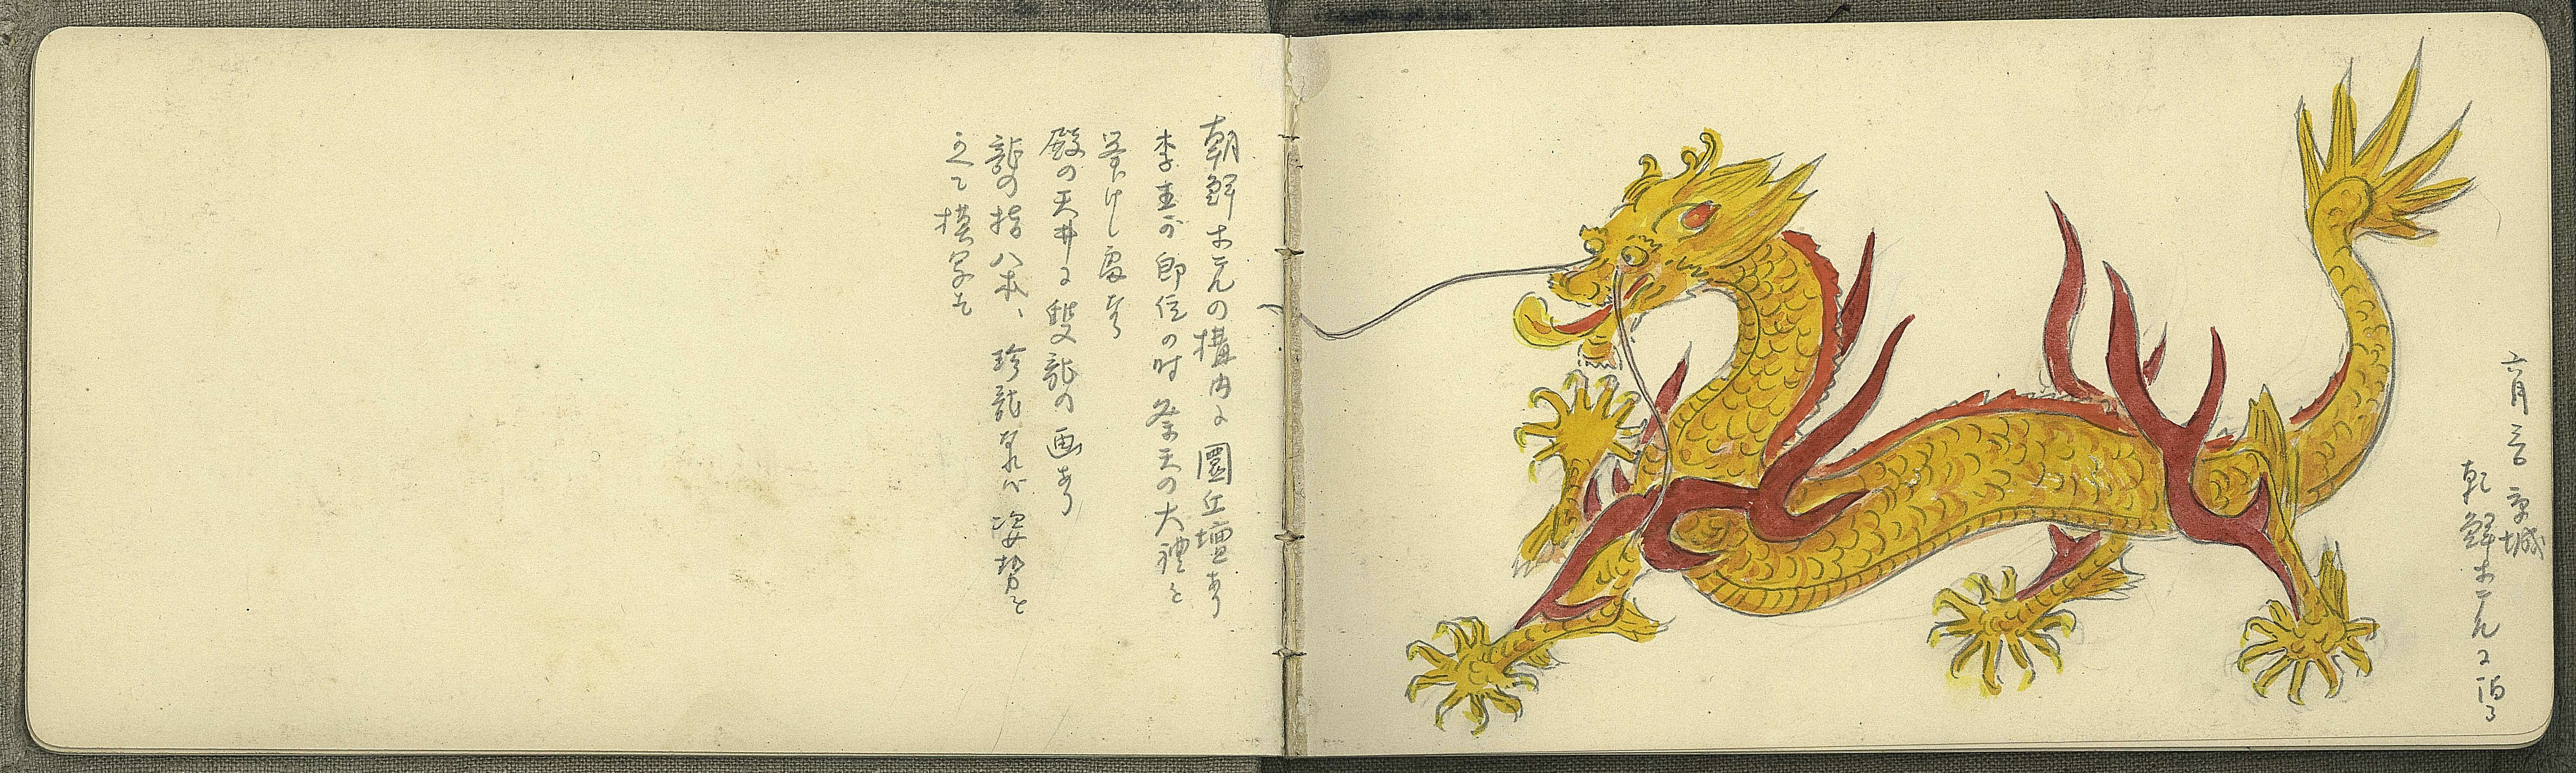 六月三日 京城
朝鮮ホテルニ泊る
朝鮮ホテルの構内に圜丘壇あり
李王が即位の時祭天の大禮を
挙げし處なり
殿の天井に雙龍の画あり
龍の指八本、珍龍なれバ姿勢を
て模写す